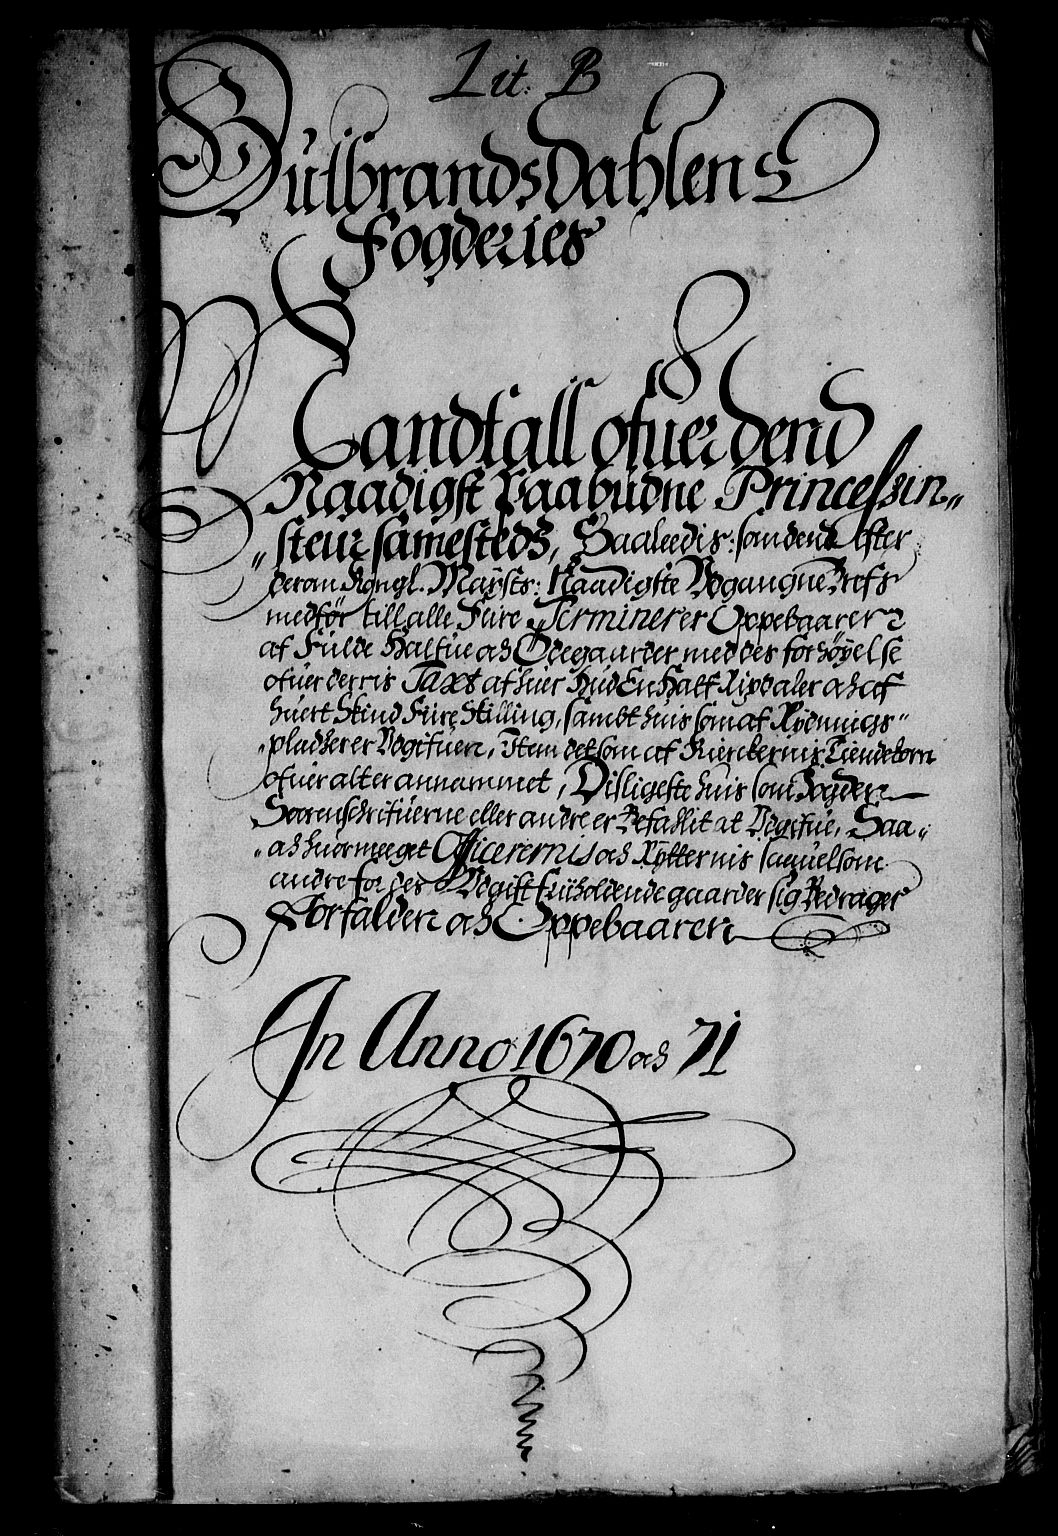 Lit. B
Gülbrands Dahlens
Fogderies
Mandtall ofuer dend
Naadigst Paabudne Princessin„
„steur samesteds, Saaleedis: som dend Efter
derom Kongl. Maÿsts: Naadigste Udgangne Brefs
medför till alle Fiire Terminer er Oppebaaren
af Fulde Halfue och Ödegaarder med des forhöyelse
ofuer derris Taxt af huer Hud En Half Rixdaler och af
huert Skind Fiire Skilling, sambt huis som af Rÿdnings„
„pladser er Udgifuen, Item det som af Kierckernis Tiendekorn
ofuer alt er annammet, Disligeste huis som Fogden
Sorenschrifuerne eller andre er Befahlit at Udgifue, Saa„
„och huor meeget Officerernis och Rÿtternis saauelsom
andre for des Udgift friholdende gaarder sig Bedrager
Forfalden och Oppebaaren
In Anno 1670 och 71